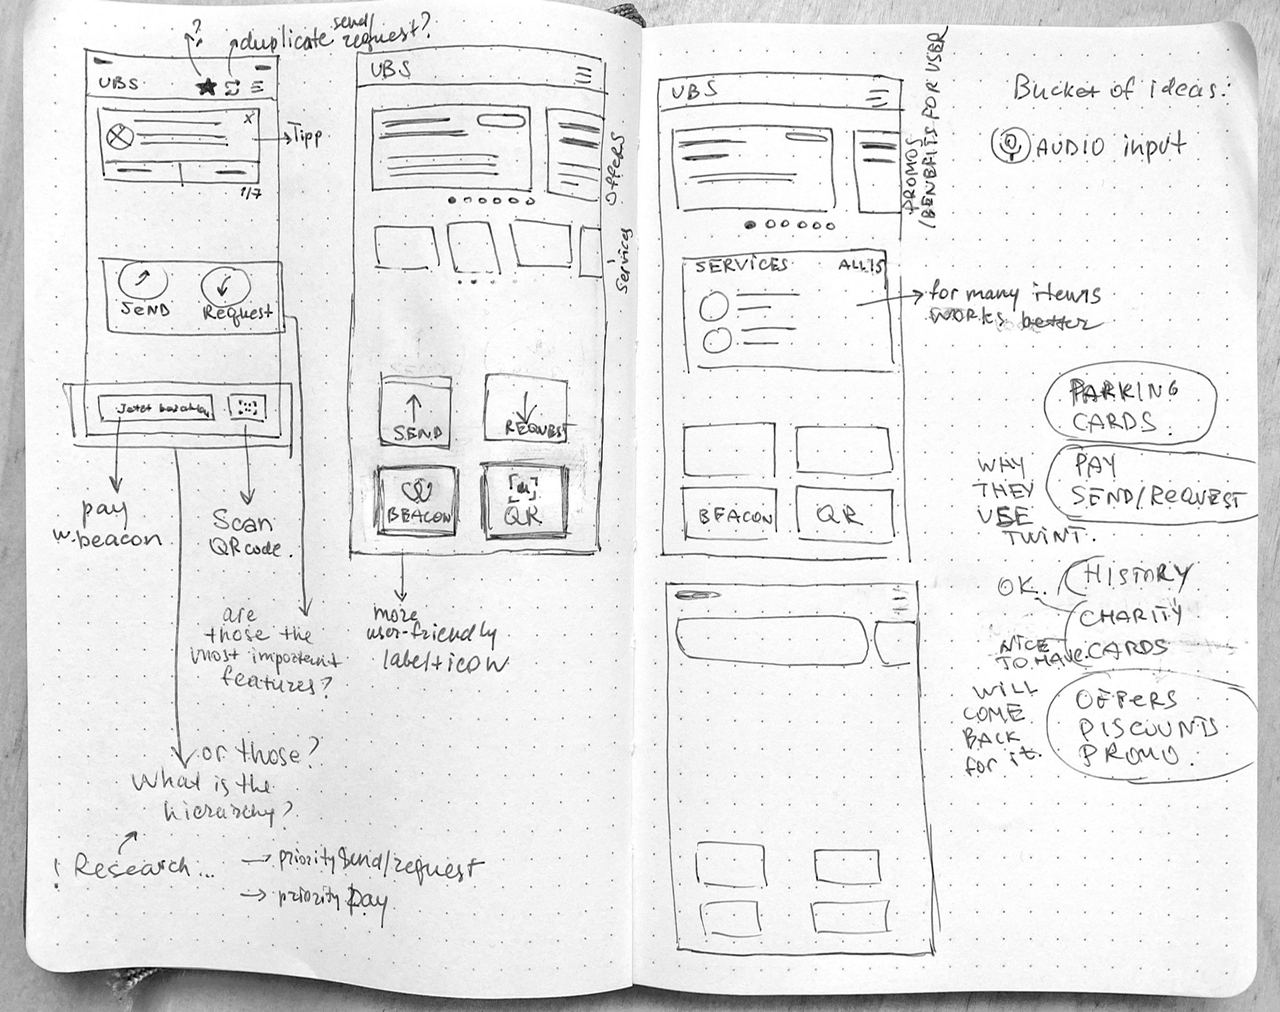 ?
duplicate send/
request?
UBS
x
Tipp
1/7
SEND
Request
Jetzt bezahlen
pay
w. beacon
Scan
QR code.
are
those the
most important
features?
or those?
What is the
hierarchy?
! Research...
→ priority send/request
→ priority pay
UBS
Offers
Services
SEND
REQUEST
BEACON
QR
more
user-friendly
label+icon
UBS
PROMOS
/BENEFITS FOR USER
SERVICES
ALL 15
for many items
works better
BEACON
QR
Bucket of ideas:
AUDIO input
PARKING
CARDS
WHY
THEY
USE
TWINT.
PAY
SEND/REQUEST
OK.
HISTORY
CHARITY
NICE
TO HAVE
CARDS
WILL
COME
BACK
for it.
OFFERS
DISCOUNTS
PROMO.